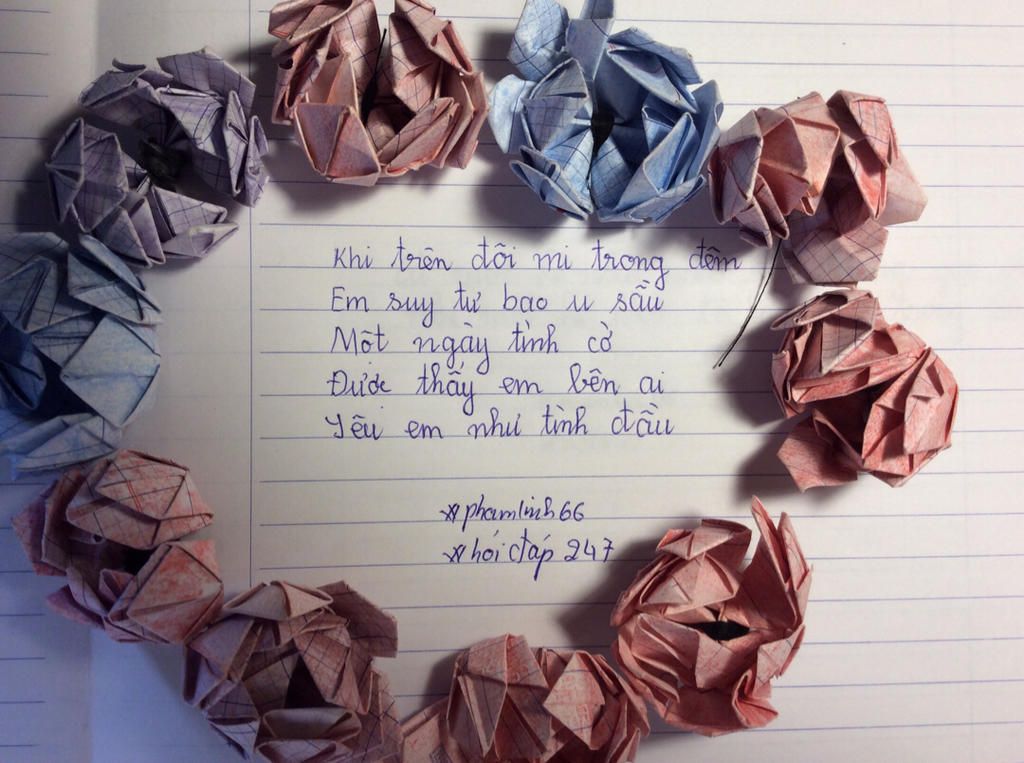 Khi trên đôi mi trong đêm
Em suy tư bao u sầu
Một ngày tình cờ
Được thấy em bên ai
Yêu em như tình đầu
*phamlinh66
*hỏi đáp 247